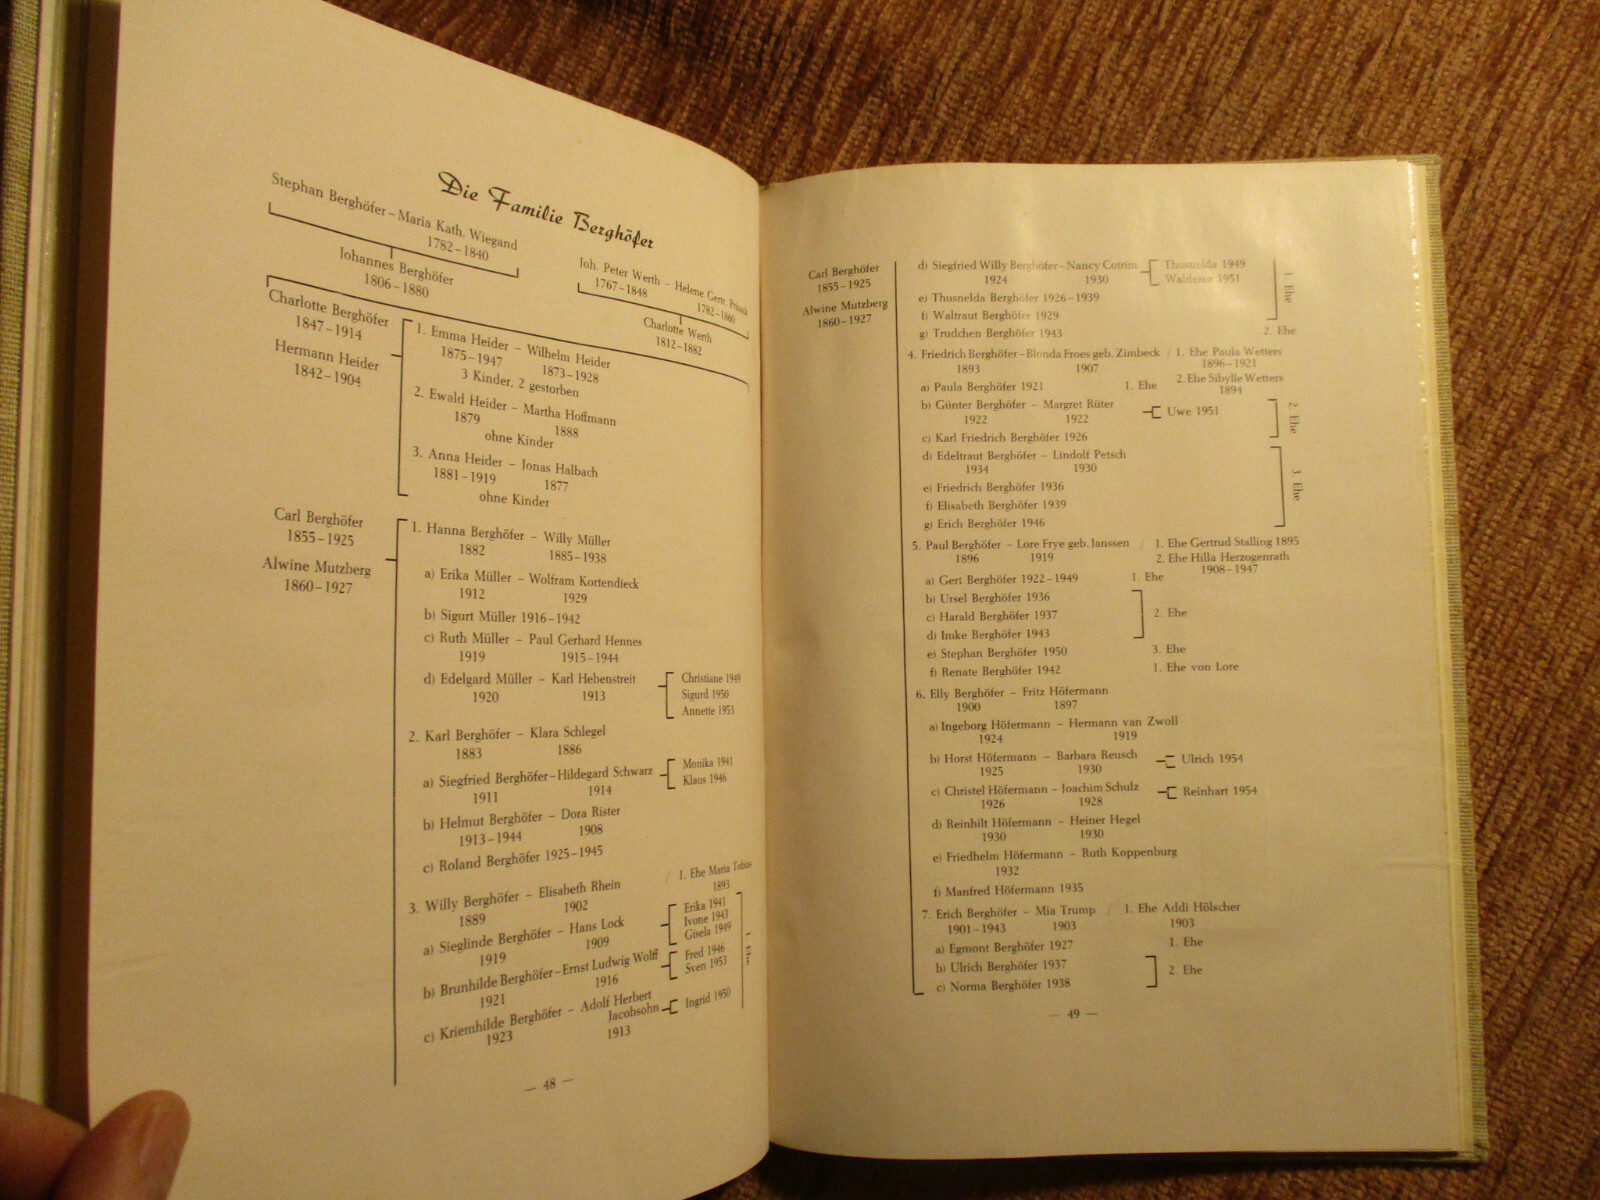 Die Familie Berghöfer
Stephan Berghöfer – Maria Kath. Wiegand
1782–1840
Joh. Peter Werth – Helene Gertr.
1767–1848 1782–1860
Johannes Berghöfer
1806–1880
Charlotte Werth
1812–1882
Charlotte Berghöfer
1847–1914
Hermann Heider
1842–1904
1. Emma Heider – Wilhelm Heider
1875–1947 1873–1928
3 Kinder, 2 gestorben
2. Ewald Heider – Martha Hoffmann
1879 1888
ohne Kinder
3. Anna Heider – Jonas Halbach
1881–1919 1877
ohne Kinder
Carl Berghöfer
1855–1925
Alwine Mutzberg
1860–1927
1. Hanna Berghöfer – Willy Müller
1882 1885–1938
a) Erika Müller – Wolfram Kortendieck
1912 1929
b) Sigurt Müller 1916–1942
c) Ruth Müller – Paul Gerhard Hennes
1919 1915–1944
d) Edelgard Müller – Karl Hebenstreit
1920 1913
Christiane 1949
Sigurd 1950
Annette 1953
2. Karl Berghöfer – Klara Schlegel
1883 1886
a) Siegfried Berghöfer–Hildegard Schwarz
1911 1914
Monika 1941
Klaus 1946
b) Helmut Berghöfer – Dora Rister
1913–1944 1908
c) Roland Berghöfer 1925–1945
3. Willy Berghöfer – Elisabeth Rhein / 1. Ehe Maria Tobias
1889 1902 1893
a) Sieglinde Berghöfer – Hans Lock
1919 1909
Erika 1941
Ivone 1943
Gisela 1949
b) Brunhilde Berghöfer–Ernst Ludwig Wolff
1921 1916
Fred 1946
Sven 1953
c) Kriemhilde Berghöfer – Adolf Herbert
Jacobsohn
1923 1913
Ingrid 1950
1. Ehe
— 48 —
Carl Berghöfer
1855–1925
Alwine Mutzberg
1860–1927
d) Siegfried Willy Berghöfer–Nancy Cotrim
1924 1930
Thusnelda 1949
1951
e) Thusnelda Berghöfer 1926–1939
f) Waltraut Berghöfer 1929
1. Ehe
g) Trudchen Berghöfer 1943 2. Ehe
4. Friedrich Berghöfer–Blonda Froes geb. Zimbeck / 1. Ehe Paula Wetters
1893 1907 1896–1921
2. Ehe Sibylle Wetters
1894
a) Paula Berghöfer 1921 1. Ehe
b) Günter Berghöfer – Margret Rüter
1922 1922
Uwe 1951
c) Karl Friedrich Berghöfer 1926
2. Ehe
d) Edeltraut Berghöfer – Lindolf Petsch
1934 1930
e) Friedrich Berghöfer 1936
f) Elisabeth Berghöfer 1939
g) Erich Berghöfer 1946
3. Ehe
5. Paul Berghöfer – Lore Frye geb. Janssen / 1. Ehe Gertrud Stalling 1895
1896 1919 2. Ehe Hilla Herzogenrath
1908–1947
a) Gert Berghöfer 1922–1949 1. Ehe
b) Ursel Berghöfer 1936
c) Harald Berghöfer 1937 2. Ehe
d) Imke Berghöfer 1943
e) Stephan Berghöfer 1950 3. Ehe
f) Renate Berghöfer 1942 1. Ehe von Lore
6. Elly Berghöfer – Fritz Höfermann
1900 1897
a) Ingeborg Höfermann – Hermann van Zwoll
1924 1919
b) Horst Höfermann – Barbara Reusch
1925 1930
Ulrich 1954
c) Christel Höfermann – Joachim Schulz
1926 1928
Reinhart 1954
d) Reinhilt Höfermann – Heiner Hegel
1930 1930
e) Friedhelm Höfermann – Ruth Koppenburg
1932
f) Manfred Höfermann 1935
7. Erich Berghöfer – Mia Trump / 1. Ehe Addi Hölscher
1901–1943 1903 1903
a) Egmont Berghöfer 1927 1. Ehe
b) Ulrich Berghöfer 1937
2. Ehe
c) Norma Berghöfer 1938
— 49 —